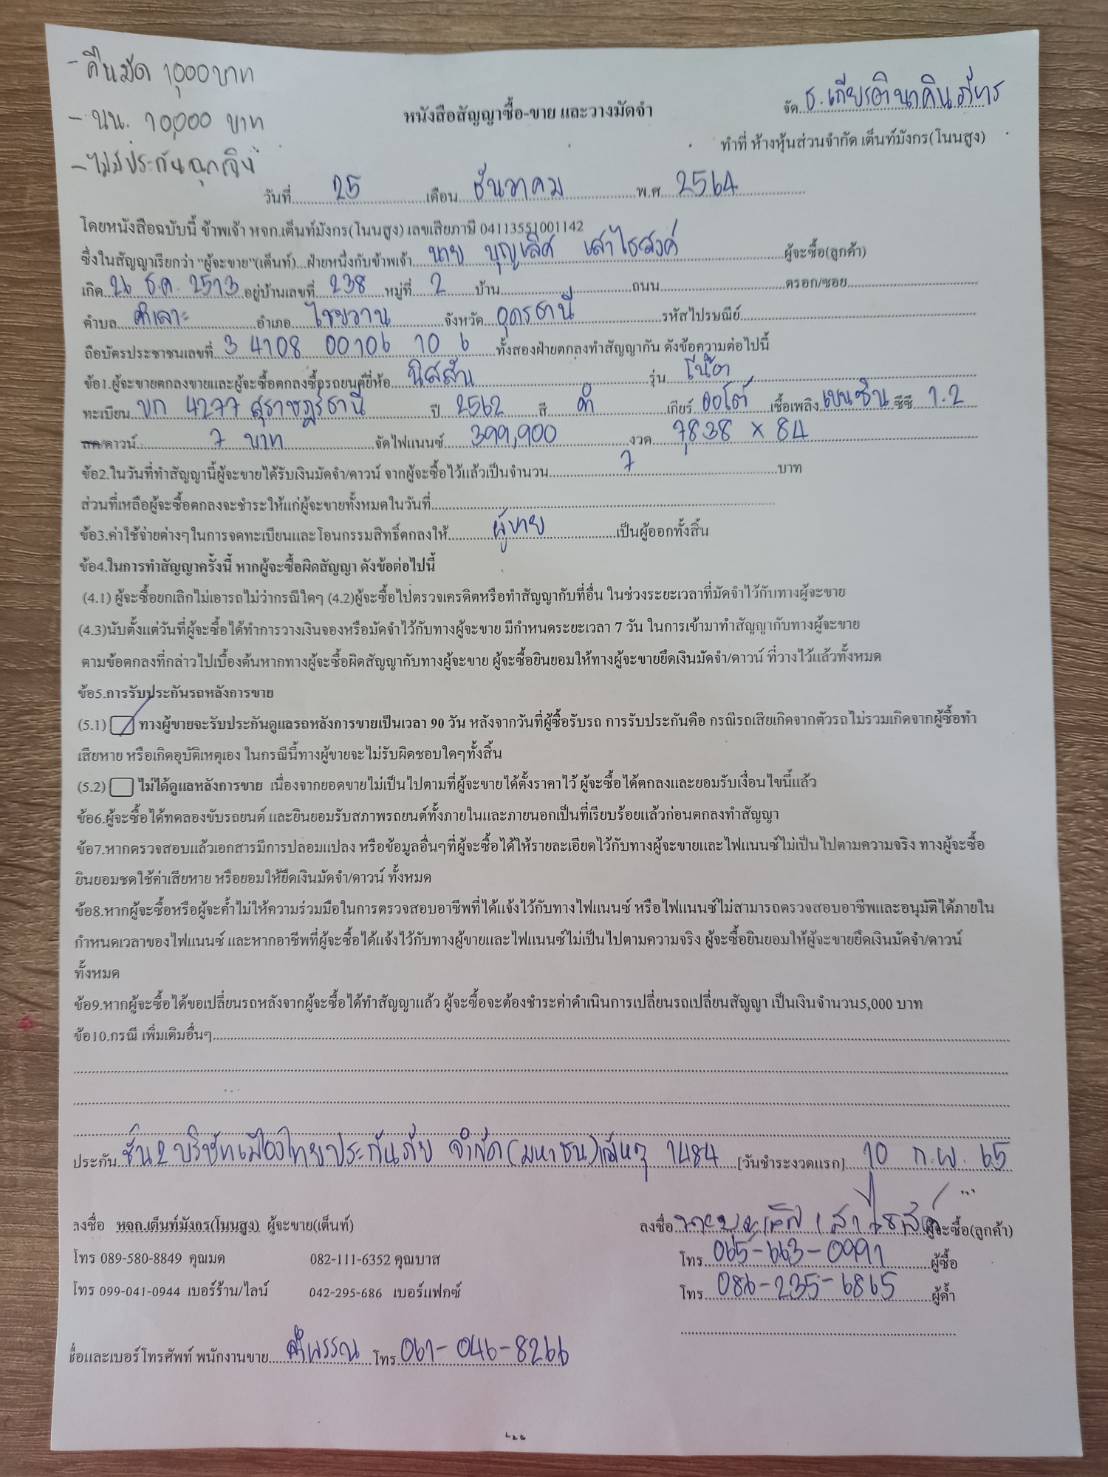 - คืนมัด 1,000 บาท
- นน. 10,000 บาท
- ไม่มีประกันฉุกเฉิน
จัด ธ.เกียรตินาคินภัทร
หนังสือสัญญาซื้อ-ขาย และวางมัดจำ
ทำที่ ห้างหุ้นส่วนจำกัด เต็นท์มังกร(โนนสูง)
วันที่ 25 เดือน ธันวาคม พ.ศ 2564
โดยหนังสือฉบับนี้ ข้าพเจ้า หจก.เต็นท์มังกร(โนนสูง) เลขเสียภาษี 04113551001142
ซึ่งในสัญญาเรียกว่า "ผู้จะขาย"(เต็นท์)...ฝ่ายหนึ่งกับข้าพเจ้า นาย บุญเลิศ เสาไธสงค์ ผู้จะซื้อ(ลูกค้า)
เกิด 26 ธ.ค. 2513 อยู่บ้านเลขที่ 238 หมู่ที่ 2 บ้าน ถนน ตรอก/ซอย
ตำบล คำเลาะ อำเภอ ไชยวาน จังหวัด อุดรธานี รหัสไปรษณีย์
ถือบัตรประชาชนเลขที่ 3 4108 00106 10 6 ทั้งสองฝ่ายตกลงทำสัญญากัน ดังข้อความต่อไปนี้
ข้อ1.ผู้จะขายตกลงขายและผู้จะซื้อตกลงซื้อรถยนต์ยี่ห้อ นิสสัน รุ่น โน๊ต
ทะเบียน ขก 4277 สุราษฎร์ธานี ปี 2562 สี ดำ เกียร์ ออโต้ เชื้อเพลิง เบนซิน ซีซี 1.2
สด/ดาวน์ 7 บาท จัดไฟแนนซ์ 399,900 งวด 7,838 x 84
ข้อ2.ในวันที่ทำสัญญานี้ผู้จะขายได้รับเงินมัดจำ/ดาวน์ จากผู้จะซื้อไว้แล้วเป็นจำนวน 7 บาท
ส่วนที่เหลือผู้จะซื้อตกลงจะชำระให้แก่ผู้จะขายทั้งหมดในวันที่
ข้อ3.ค่าใช้จ่ายต่างๆในการจดทะเบียนและโอนกรรมสิทธิ์ตกลงให้ ผู้ขาย เป็นผู้ออกทั้งสิ้น
ข้อ4.ในการทำสัญญาครั้งนี้ หากผู้จะซื้อผิดสัญญา ดังข้อต่อไปนี้
(4.1) ผู้จะซื้อยกเลิกไม่เอารถไม่ว่ากรณีใดๆ (4.2)ผู้จะซื้อไปตรวจเครดิตหรือทำสัญญากับที่อื่น ในช่วงระยะเวลาที่มัดจำไว้กับทางผู้จะขาย
(4.3)นับตั้งแต่วันที่ผู้จะซื้อได้ทำการวางเงินจองหรือมัดจำไว้กับทางผู้จะขาย มีกำหนดระยะเวลา 7 วัน ในการเข้ามาทำสัญญากับทางผู้จะขาย
ตามข้อตกลงที่กล่าวไปเบื้องต้นหากทางผู้จะซื้อผิดสัญญากับทางผู้จะขาย ผู้จะซื้อยินยอมให้ทางผู้จะขายยึดเงินมัดจำ/ดาวน์ ที่วางไว้แล้วทั้งหมด
ข้อ5.การรับประกันรถหลังการขาย
(5.1) ทางผู้ขายจะรับประกันดูแลรถหลังการขายเป็นเวลา 90 วัน หลังจากวันที่ผู้ซื้อรับรถ การรับประกันคือ กรณีรถเสียเกิดจากตัวรถ ไม่รวมเกิดจากผู้ซื้อทำ
เสียหาย หรือเกิดอุบัติเหตุเอง ในกรณีนี้ทางผู้ขายจะ ไม่รับผิดชอบใดๆทั้งสิ้น
(5.2) ไม่ได้ดูแลหลังการขาย เนื่องจากยอดขายไม่เป็นไปตามที่ผู้จะขายได้ตั้งราคาไว้ ผู้จะซื้อได้ตกลงและยอมรับเงื่อนไขนี้แล้ว
ข้อ6.ผู้จะซื้อได้ทดลองขับรถยนต์ และยินยอมรับสภาพรถยนต์ทั้งภายในและภายนอกเป็นที่เรียบร้อยแล้วก่อนตกลงทำสัญญา
ข้อ7.หากตรวจสอบแล้วเอกสารมีการปลอมแปลง หรือข้อมูลอื่นๆที่ผู้จะซื้อได้ให้รายละเอียดไว้กับทางผู้จะขายและไฟแนนซ์ไม่เป็นไปตามความจริง ทางผู้จะซื้อ
ยินยอมชดใช้ค่าเสียหาย หรือยอมให้ยึดเงินมัดจำ/ดาวน์ ทั้งหมด
ข้อ8.หากผู้จะซื้อหรือผู้จะค้ำไม่ให้ความร่วมมือในการตรวจสอบอาชีพที่ได้แจ้งไว้กับทางไฟแนนซ์ หรือไฟแนนซ์ไม่สามารถตรวจสอบอาชีพและอนุมัติได้ภายใน
กำหนดเวลาของไฟแนนซ์ และหากอาชีพที่ผู้จะซื้อได้แจ้งไว้กับทางผู้ขายและไฟแนนซ์ไม่เป็นไปตามความจริง ผู้จะซื้อยินยอมให้ผู้จะขายยึดเงินมัดจำ/ดาวน์
ทั้งหมด
ข้อ9.หากผู้จะซื้อได้ขอเปลี่ยนรถหลังจากผู้จะซื้อได้ทำสัญญาแล้ว ผู้จะซื้อจะต้องชำระค่าดำเนินการเปลี่ยนรถเปลี่ยนสัญญา เป็นเงินจำนวน5,000 บาท
ข้อ10.กรณี เพิ่มเติมอื่นๆ
ประกัน ชั้น 2 บริษัทเมืองไทยประกันภัย จำกัด (มหาชน) แจ้งเหตุ 1484 [วันชำระงวดแรก] 10 ก.พ. 65
ลงชื่อ หจก.เต็นท์มังกร(โนนสูง) ผู้จะขาย(เต็นท์) ลงชื่อ ผู้จะซื้อ(ลูกค้า)
โทร 089-580-8849 คุณมด 082-111-6352 คุณบาส โทร 065-663-0991 ผู้ซื้อ
โทร 099-041-0944 เบอร์ร้าน/ไลน์ 042-295-686 เบอร์แฟกซ์ โทร 086-235-6865 ผู้ค้ำ
ชื่อและเบอร์โทรศัพท์ พนักงานขาย คำพรรณ โทร 061-046-8266